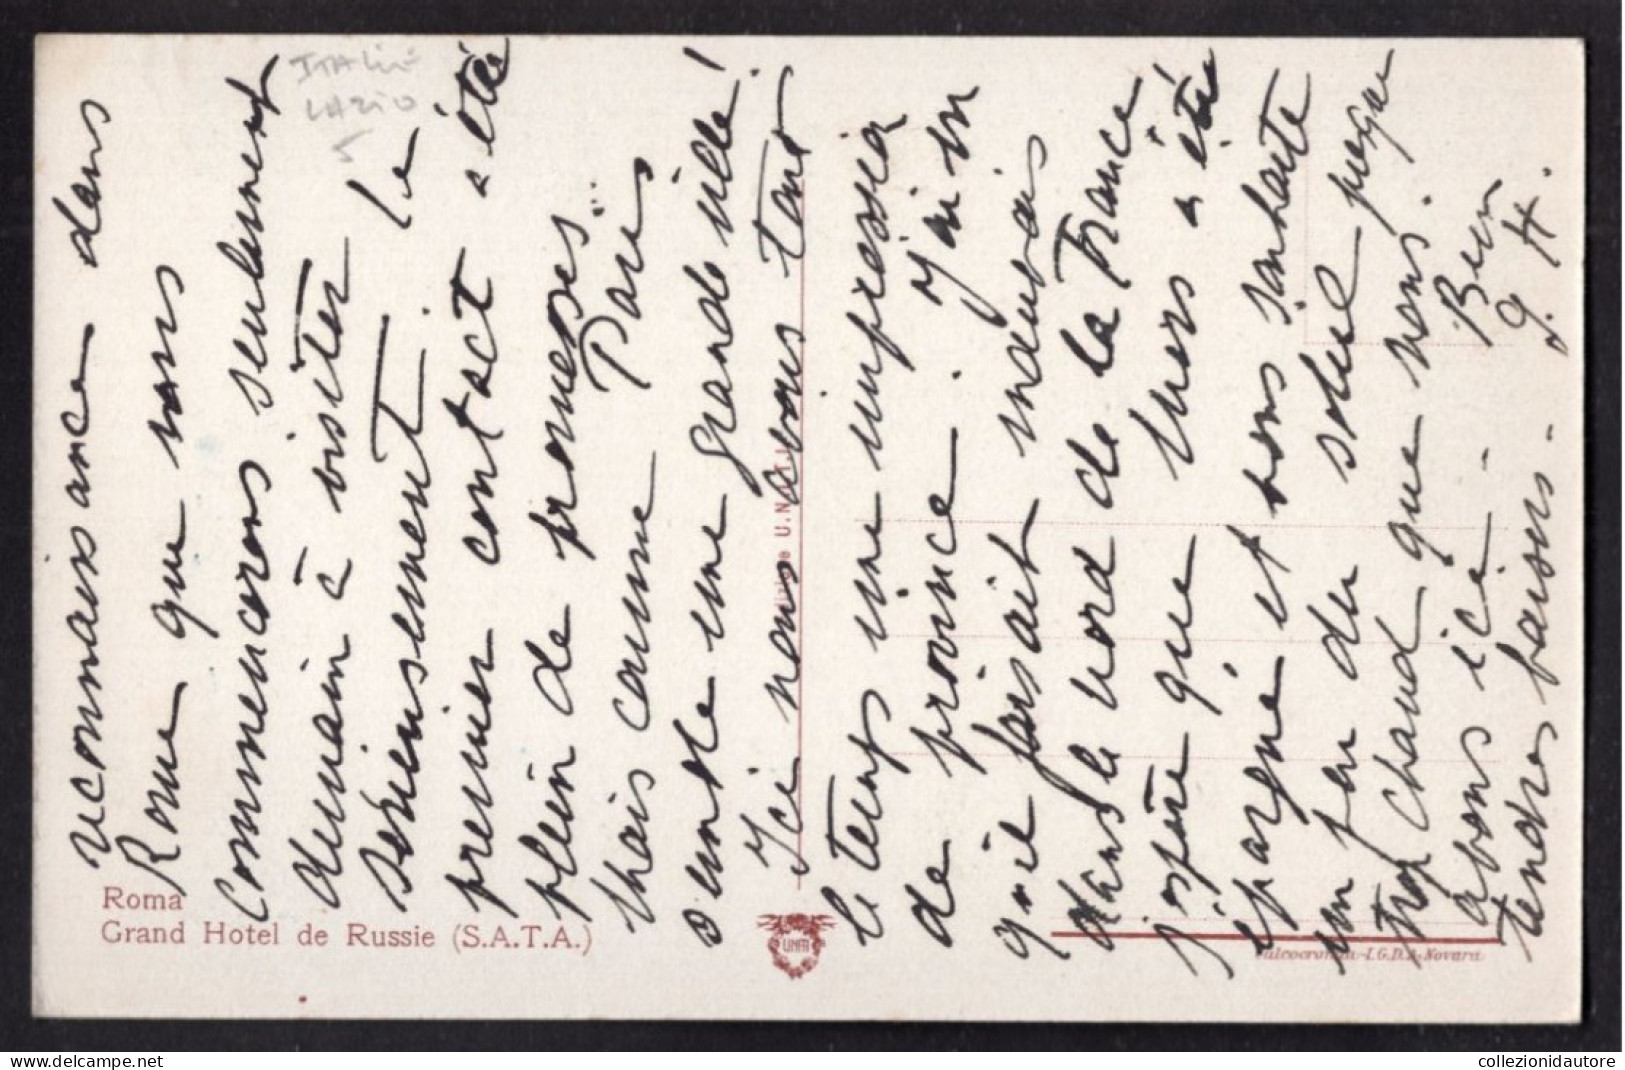 reconnaissance dans
Rome que nous
commencerons seulement
demain à visiter
sérieusement. Le
premier contact a été
plein de promesses...
Mais comme Paris
semble une grande ville!
Ici nous avons tout
le temps une impression
de province. J'ai vu
qu'il faisait mauvais
dans le nord de la France
j'espère que Mers a été
épargné et vous souhaite
un peu du soleil presque
trop chaud que nous
avons ici. - Bien
tendres baisers. - G. H.
ITALIE
LAZIO
Roma
Grand Hotel de Russie (S.A.T.A.)
U.N.I.T.I.
UNITI
I.G.D.A. Novara
collezionidautore